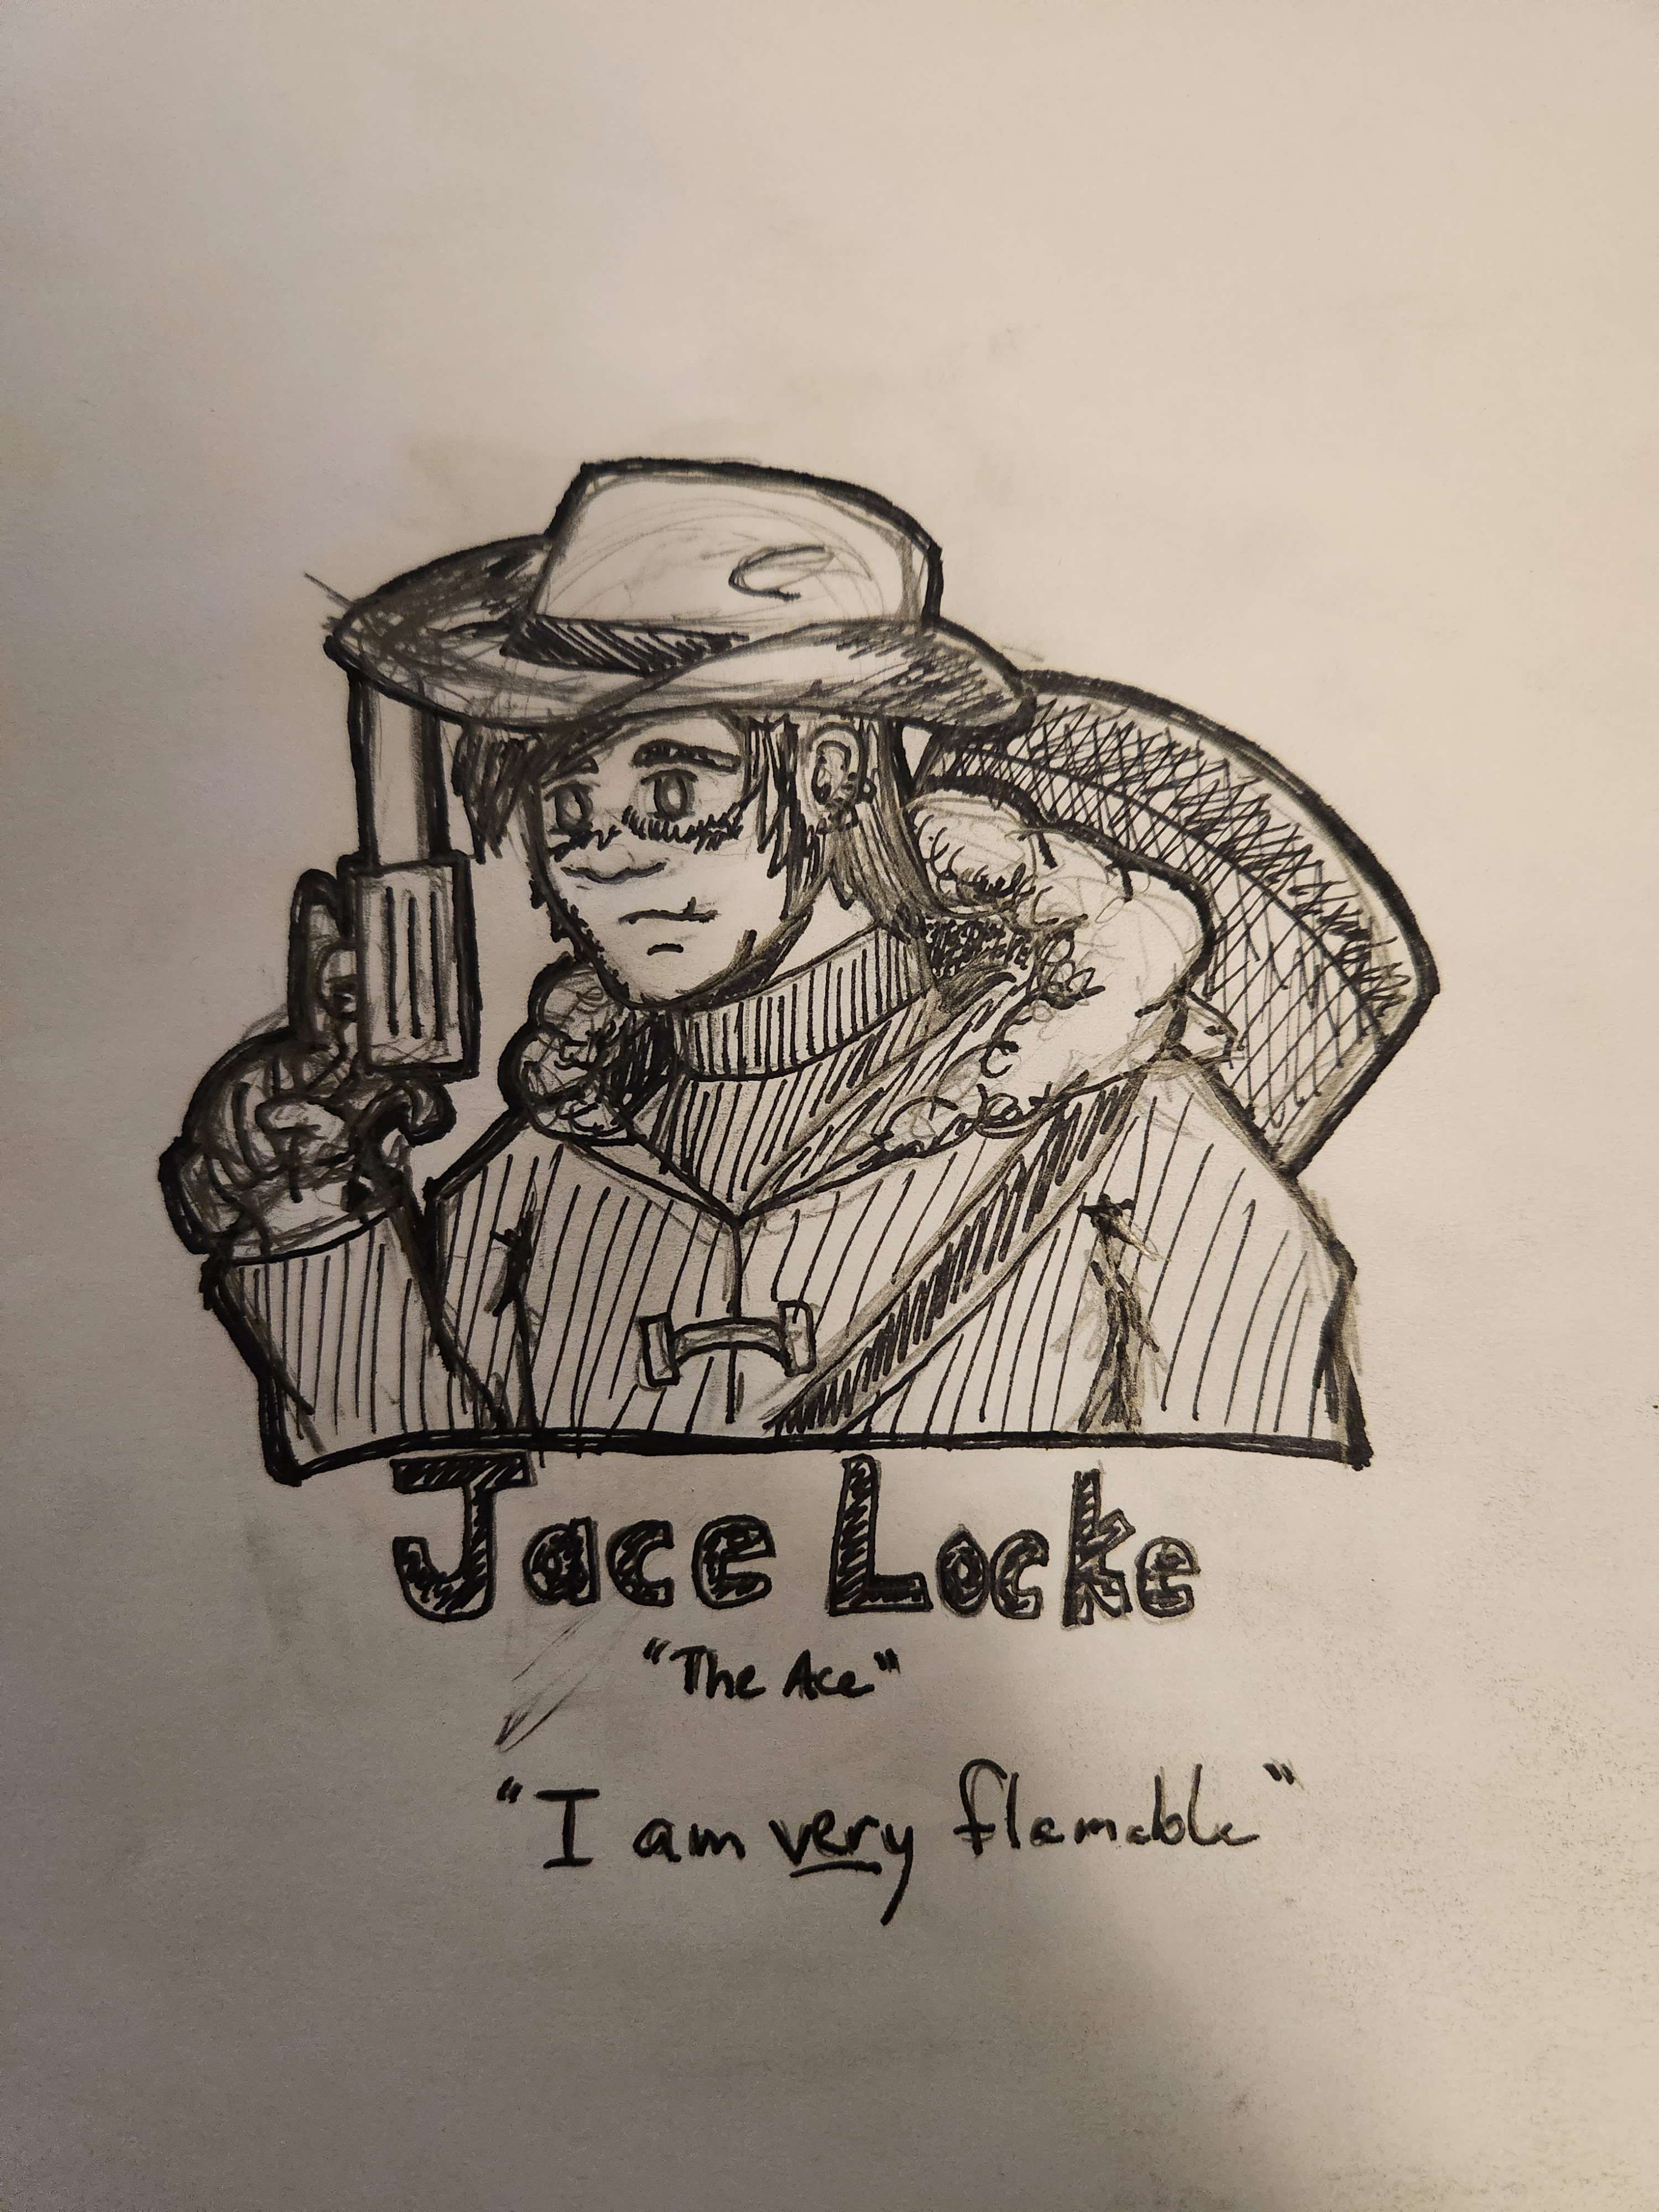 Jace Locke
"The Ace"
"I am very flamable"